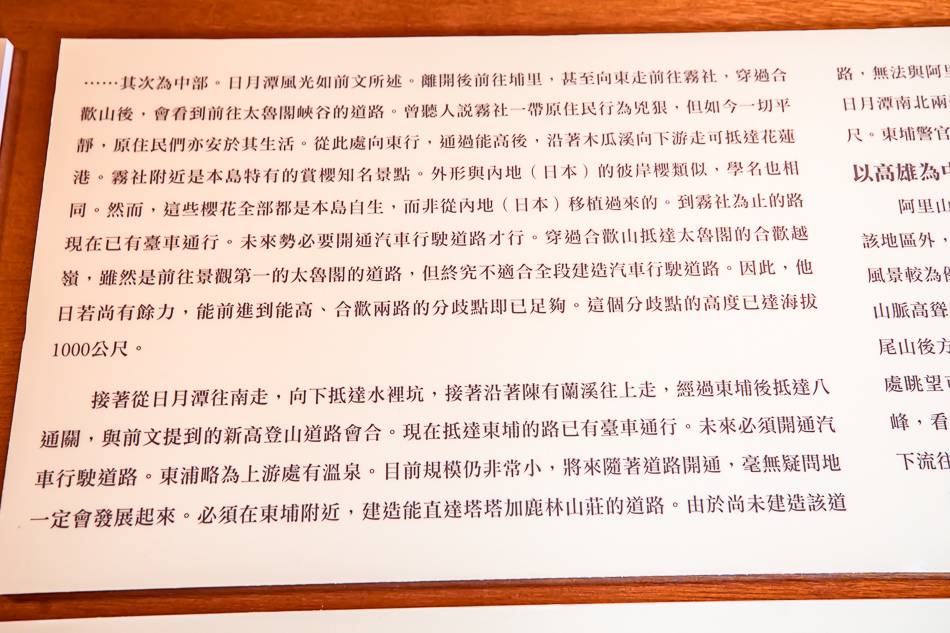 ……其次為中部。日月潭風光如前文所述。離開後前往埔里，甚至向東走前往霧社，穿過合
歡山後，會看到前往太魯閣峽谷的道路。曾聽人說霧社一帶原住民行為兇狠，但如今一切平
靜，原住民們亦安於其生活。從此處向東行，通過能高後，沿著木瓜溪向下游走可抵達花蓮
港。霧社附近是本島特有的賞櫻知名景點。外形與內地（日本）的彼岸櫻類似，學名也相
同。然而，這些櫻花全部都是本島自生，而非從內地（日本）移植過來的。到霧社為止的路
現在已有臺車通行。未來勢必要開通汽車行駛道路才行。穿過合歡山抵達太魯閣的合歡越
嶺，雖然是前往景觀第一的太魯閣的道路，但終究不適合全段建造汽車行駛道路。因此，他
日若尚有餘力，能前進到能高、合歡兩路的分歧點即已足夠。這個分歧點的高度已達海拔
1000公尺。
接著從日月潭往南走，向下抵達水裡坑，接著沿著陳有蘭溪往上走，經過東埔後抵達八
通關，與前文提到的新高登山道路會合。現在抵達東埔的路已有臺車通行。未來必須開通汽
車行駛道路。東浦略為上游處有溫泉。目前規模仍非常小，將來隨著道路開通，毫無疑問地
一定會發展起來。必須在東埔附近，建造能直達塔塔加鹿林山莊的道路。由於尚未建造該道
路，無法與阿里
日月潭南北兩
尺。東埔警官
以高雄為中
阿里山
該地區外，
風景較為優
山脈高聳
尾山後方
處眺望可
峰，看
下流往